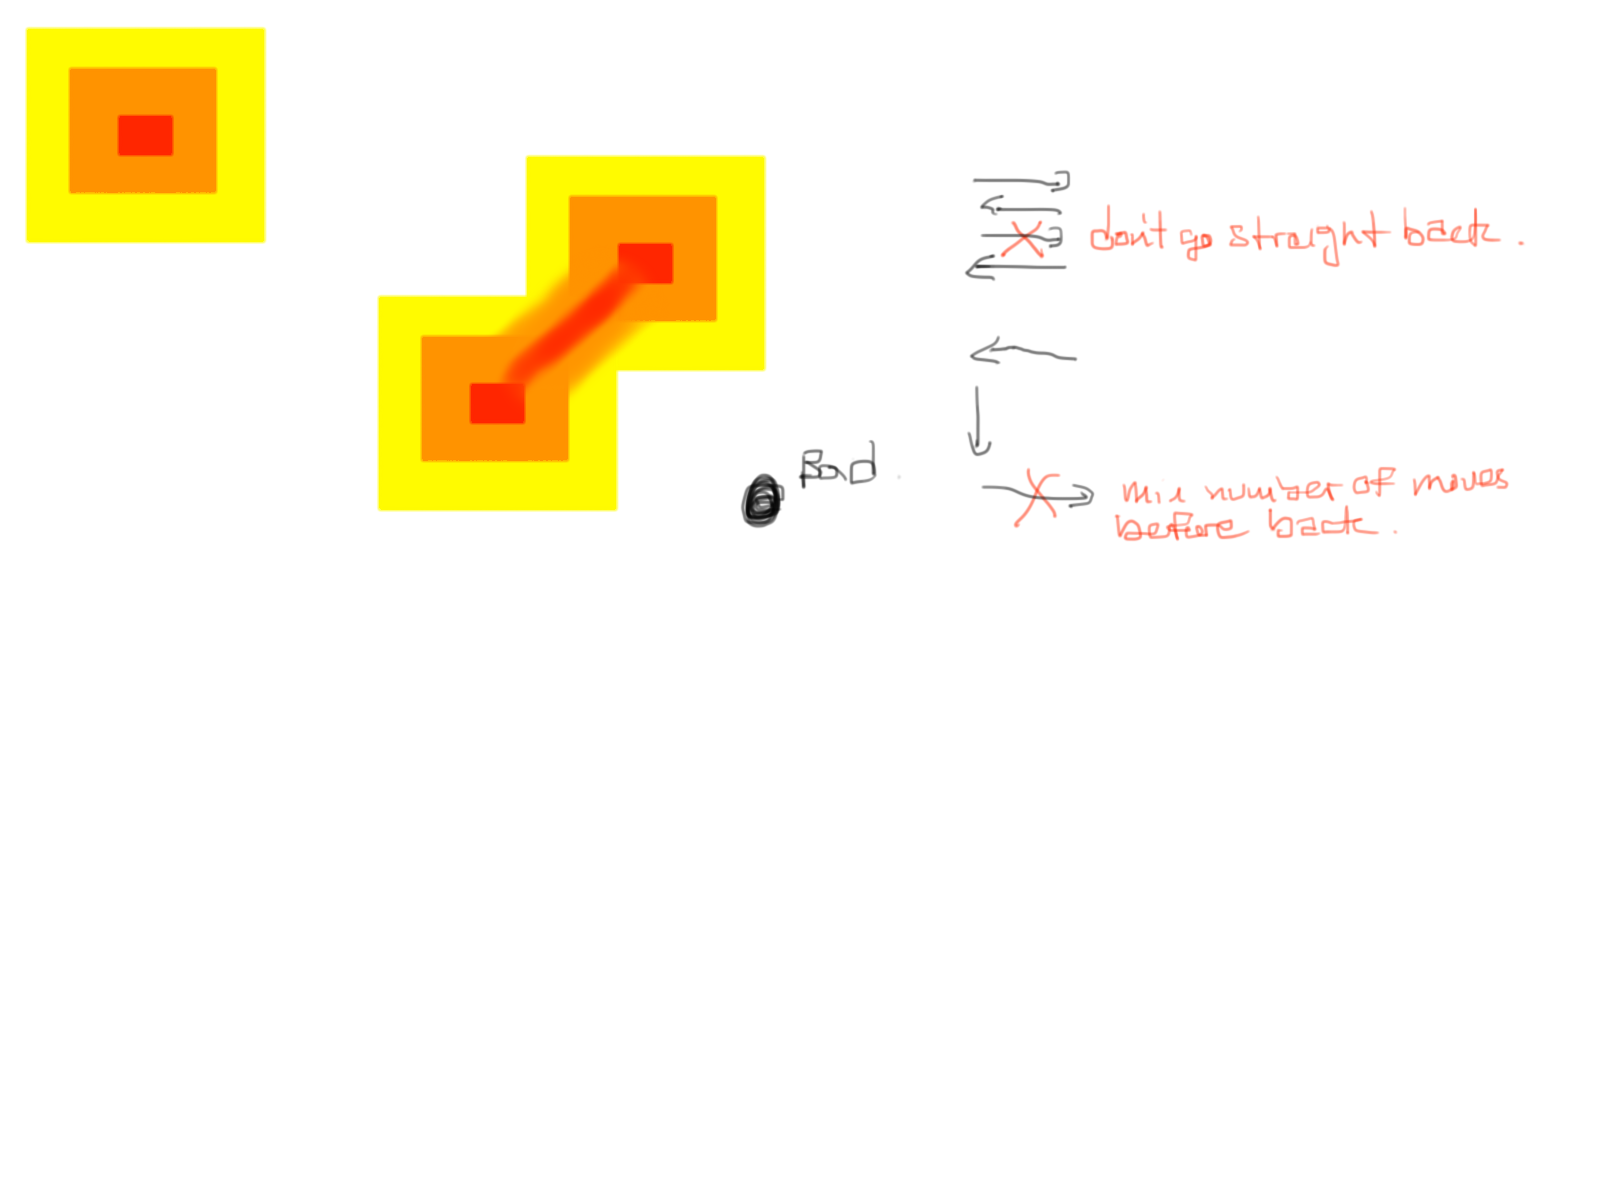 don't go straight back.
Bad.
min number of moves
before back.